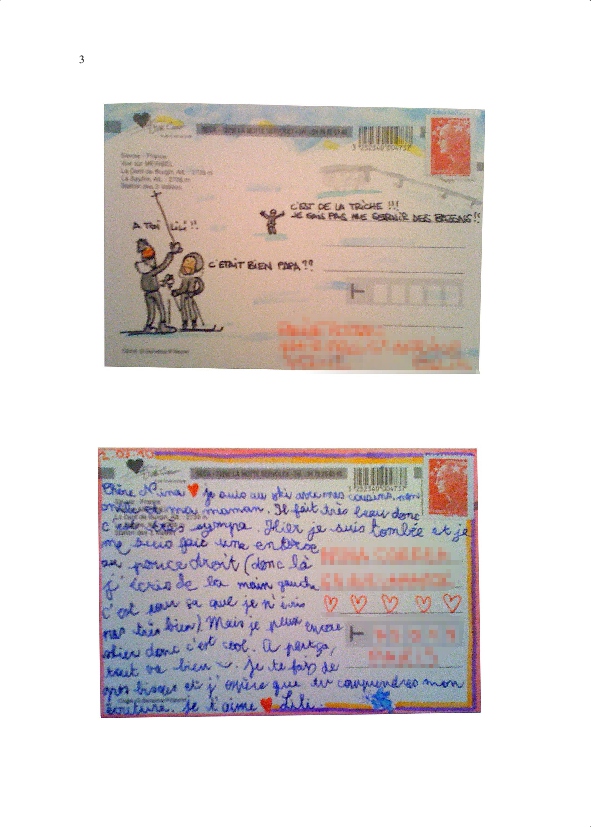 3
Savoie - France
Vue sur MERIBEL
La Dent de Burgin, Alt. : 2739 m
La Saulire, Alt. : 2738 m
Station des 3 Vallées
C'EST DE LA TRICHE !!!
JE SAIS PAS ME SERVIR DES BATONS !!
A TOI LILI !!
C'ETAIT BIEN PAPA ??
Chère Nina ♥ je suis au ski avec mes cousins, mon
oncle et ma maman. Il fait très beau donc
c'est très sympa. Hier je suis tombée et je
me suis fait une entorse
au pouce droit (donc là
j'écris de la main gauche
c'est pour sa que je n'écris
pas très bien). Mais je peux encore
skier donc c'est cool. A part ça,
tout va bien. Je te fais de
gros bisous et j'espère que tu comprendras mon
écriture. Je t'aime ♥ Lili